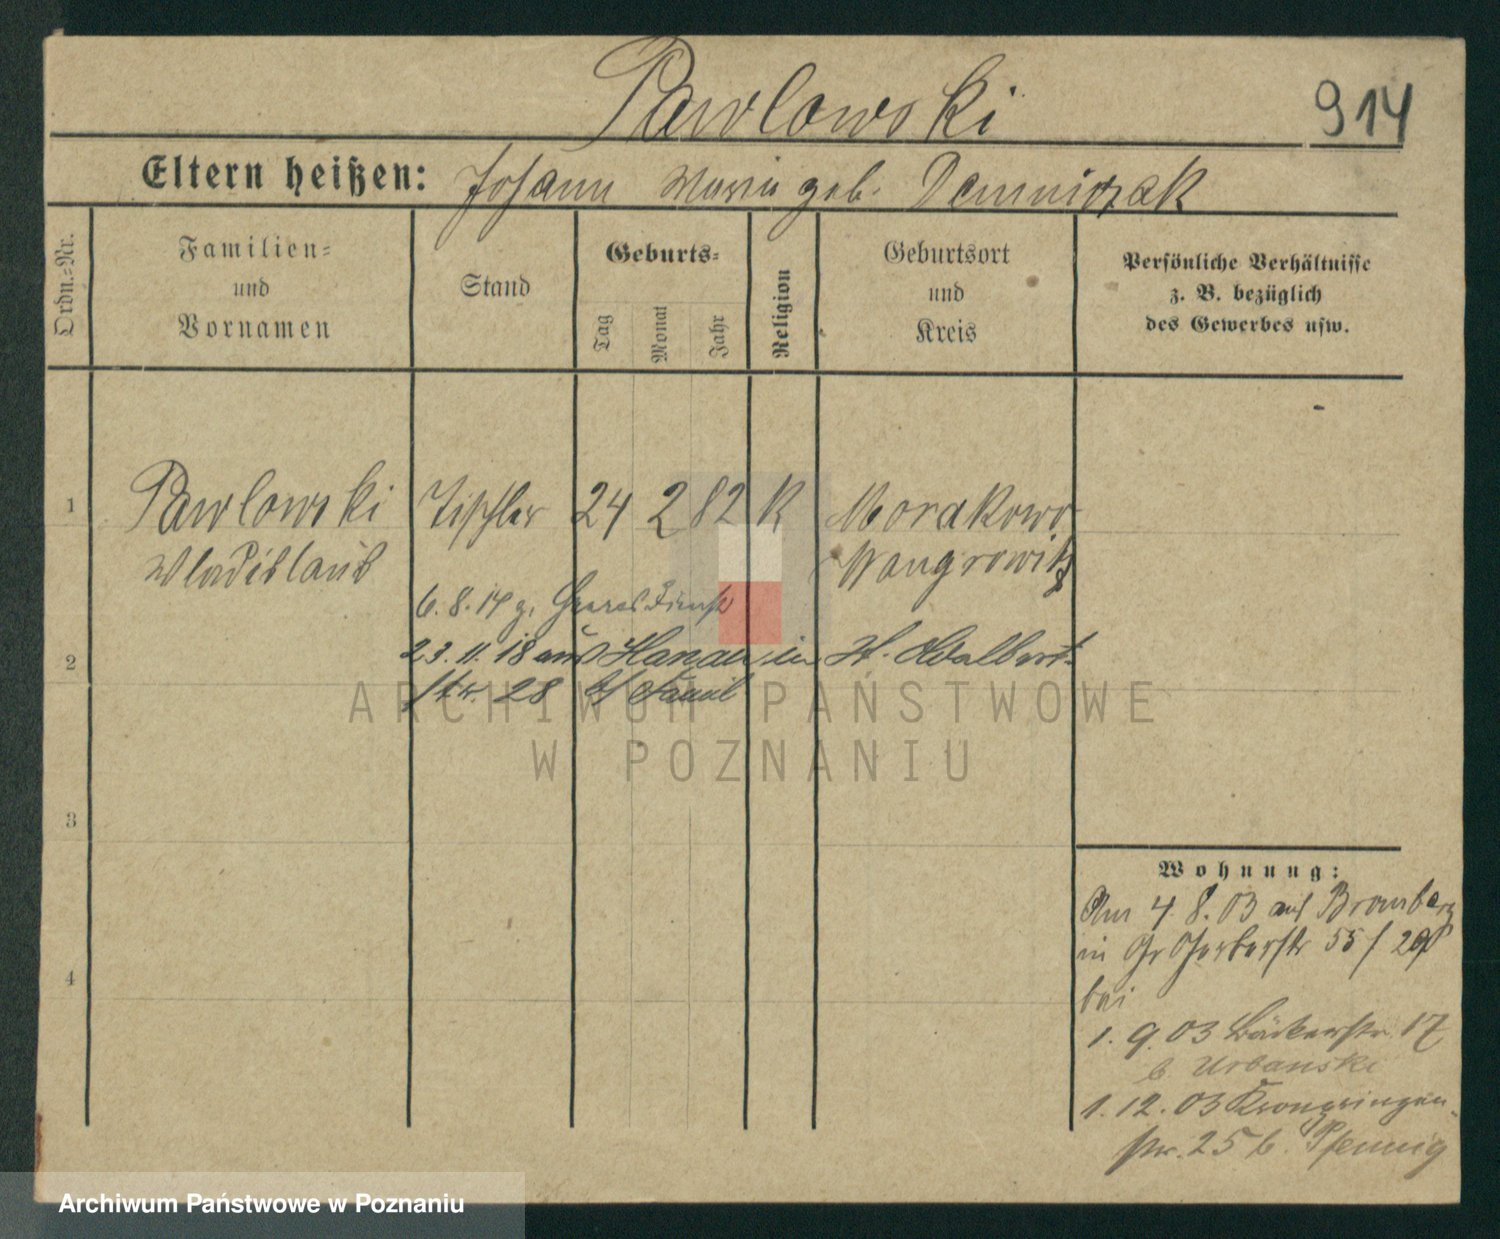 Pawlowski
914
Eltern heißen: Johann Maria geb. Demniczak
Ordn.=Nr.
Familien=
und
Vornamen
Stand
Geburts=
Tag
Monat
Jahr
Religion
Geburtsort
und
Kreis
Persönliche Verhältnisse
z. B. bezüglich
des Gewerbes usw.
1
Pawlowski Tischler 24 2 82 K Morakowo
Wladislaus Wangrowitz
6. 8. 14 z. Heeresdienst
2
23. 11. 18 aus Hanau in St. Adalbert-
str. 28 b/ Famil
3
4
Wohnung:
Am 4. 8. 03 aus Bromberg
in Gr Gerberstr 55/
bei
1. 9. 03 Bäckerstr. 17
b. Urbanski
1. 12. 03 Kronprinzen-
str. 25 b. Pfennig
ARCHIWUM PAŃSTWOWE
W POZNANIU
Archiwum Państwowe w Poznaniu